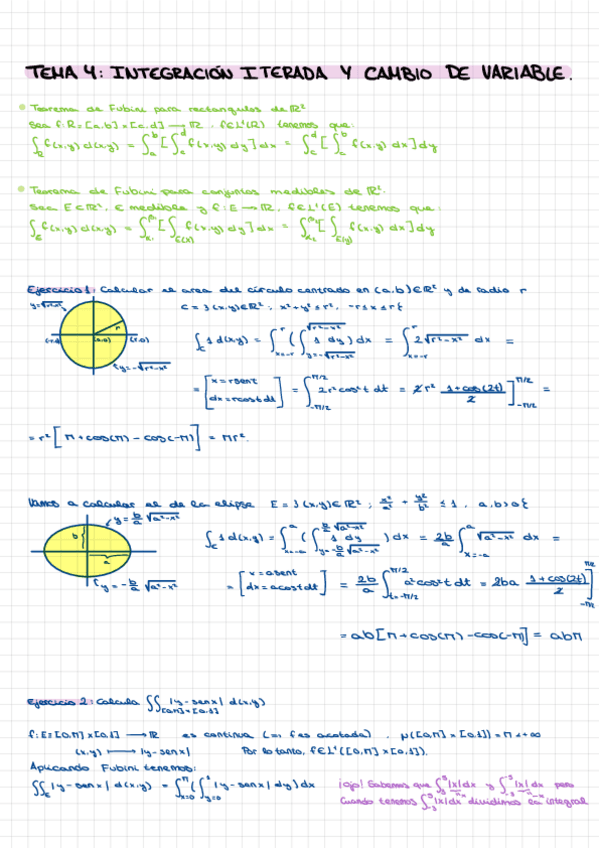 TEMA 4: INTEGRACIÓN ITERADA Y CAMBIO DE VARIABLE.
Teorema de Fubini para rectangulos de ℝ²
Sea f: R=[a,b]×[c,d] → ℝ, f∈L¹(R) tenemos que:
∫_R f(x,y) d(x,y) = ∫_a^b [∫_c^d f(x,y) dy] dx = ∫_c^d [∫_a^b f(x,y) dx] dy
Teorema de Fubini para conjuntos medibles de ℝ².
Sea E⊂ℝ², E medible y f: E → ℝ, f∈L¹(E) tenemos que:
∫_E f(x,y) d(x,y) = [∫_{E(x)} f(x,y) dy] dx = [∫_{E(y)} f(x,y) dx] dy
Ejercicio 1: Calcular el area del círculo centrado en (a,b)∈ℝ² y de radio r
y=√r²-x²
C = {(x,y)∈ℝ² ; x²+y² ≤ r², -r≤x≤r}
r
(r,0)
y=-√r²-x²
∫_C 1 d(x,y) = ∫_{x=-r}^r (∫_{y=-√r²-x²}^{√r²-x²} 1 dy) dx = ∫_{x=-r}^r 2√r²-x² dx =
= [x=rsent dx=rcostdt] = ∫_{-π/2}^{π/2} 2r²cos²t dt = 2r² (1+cos(2t))/2 ]_{-π/2}^{π/2} =
= r² [π+cos(π) - cos(-π)] = πr².
Vamos a calcular el de la elipse E = {(x,y)∈ℝ² ; x²/a² + y²/b² ≤ 1, a,b>0}
y = b/a √a²-x²
b
a
y = -b/a √a²-x²
∫_C 1 d(x,y) = ∫_{x=-a}^a (∫_{y=-b/a √a²-x²}^{b/a √a²-x²} 1 dy) dx = 2b/a ∫_{x=-a}^a √a²-x² dx =
= [x=asent dx=acostdt] = 2b/a ∫_{t=-π/2}^{π/2} a²cos²t dt = 2ba (1+cos(2t))/2 ]_{-π/2}^{π/2}
= ab[π+cos(π) - cos(-π)] = abπ
Ejercicio 2: Calcula ∫∫_{[0,π]×[0,1]} |y-senx| d(x,y)
f: E=[0,π]×[0,1] → ℝ es continua (⇒ f es acotada), μ([0,π]×[0,1]) = π < +∞
(x,y) ↦ |y-senx| Por lo tanto, f∈L¹([0,π]×[0,1]).
Aplicando Fubini tenemos:
∫∫_E |y-senx| d(x,y) = ∫_{x=0}^π (∫_{y=0}^1 |y-senx| dy) dx
¡ojo! Sabemos que |x| dx y |x| dx pero
cuando tenemos |x| dx dividimos en integral